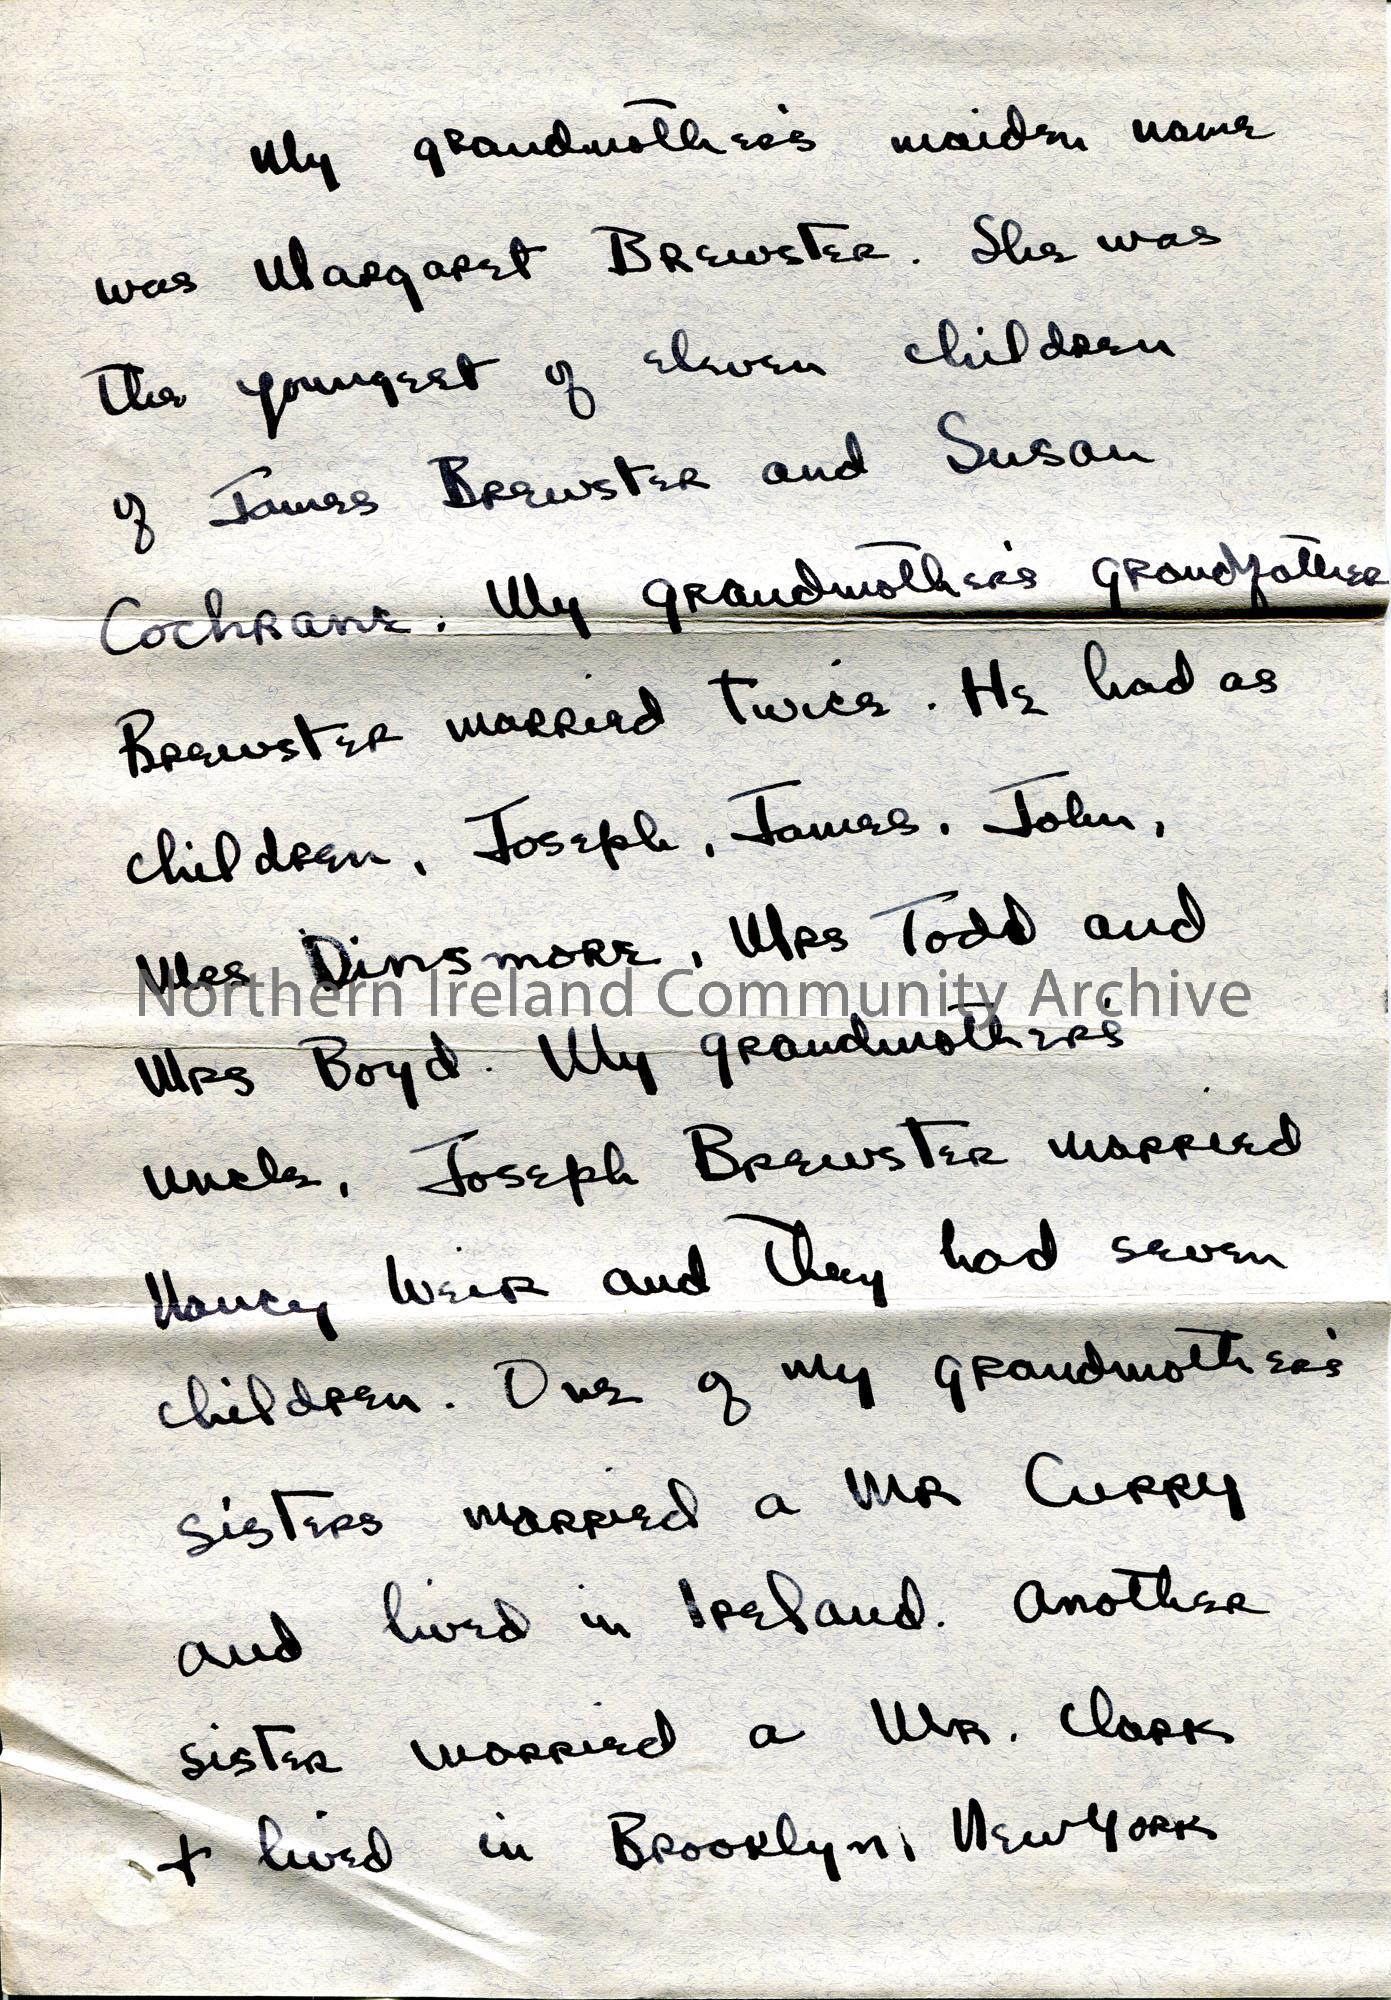 My grandmother's maiden name
was Margaret Brewster. She was
the youngest of eleven children
of James Brewster and Susan
Cochrane. My grandmother's grandfather
Brewster married twice. He had as
children, Joseph, James, John,
Mrs Dinsmore, Mrs Todd and
Northern Ireland Community Archive
Mrs Boyd. My grandmother's
uncle, Joseph Brewster married
Nancy Weir and they had seven
children. One of my grandmother's
sisters married a Mr Curry
and lived in Ireland. Another
sister married a Mr. Clark
+ lived in Brooklyn, New York